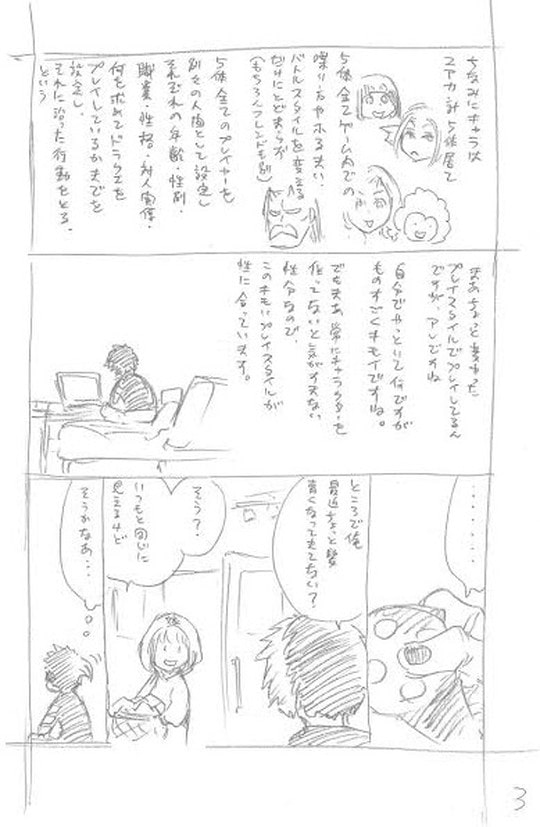 ちなみにキャラは
2アカ計5体居て
5体全てゲーム内での
喋り方やふるまい、
バトルスタイルを変える
だけにとどまらず
(もちろんフレンドも別)
5体全てのプレイヤーを
別々の人間として設定し
それぞれの年齢・性別・
職業・性格・対人関係・
何を求めてドラクエを
プレイしているかまでを
設定し、
それに沿った行動をとる、
という
まあちょっと変わった
プレイスタイルでプレイしてるん
ですが、アレですね
自分でやっといて何ですが
ものすごくキモイですね。
でもまあ、常にキャラクターを
作ってないと気がすまない
性分なので、
このキモいプレイスタイルが
性に合っています。
・・・・・・・
ところで俺
最近ちょっと髪
青くなってきてない?
そう?
いつもと同じに
見えるけど
そうかなあ・・・
3